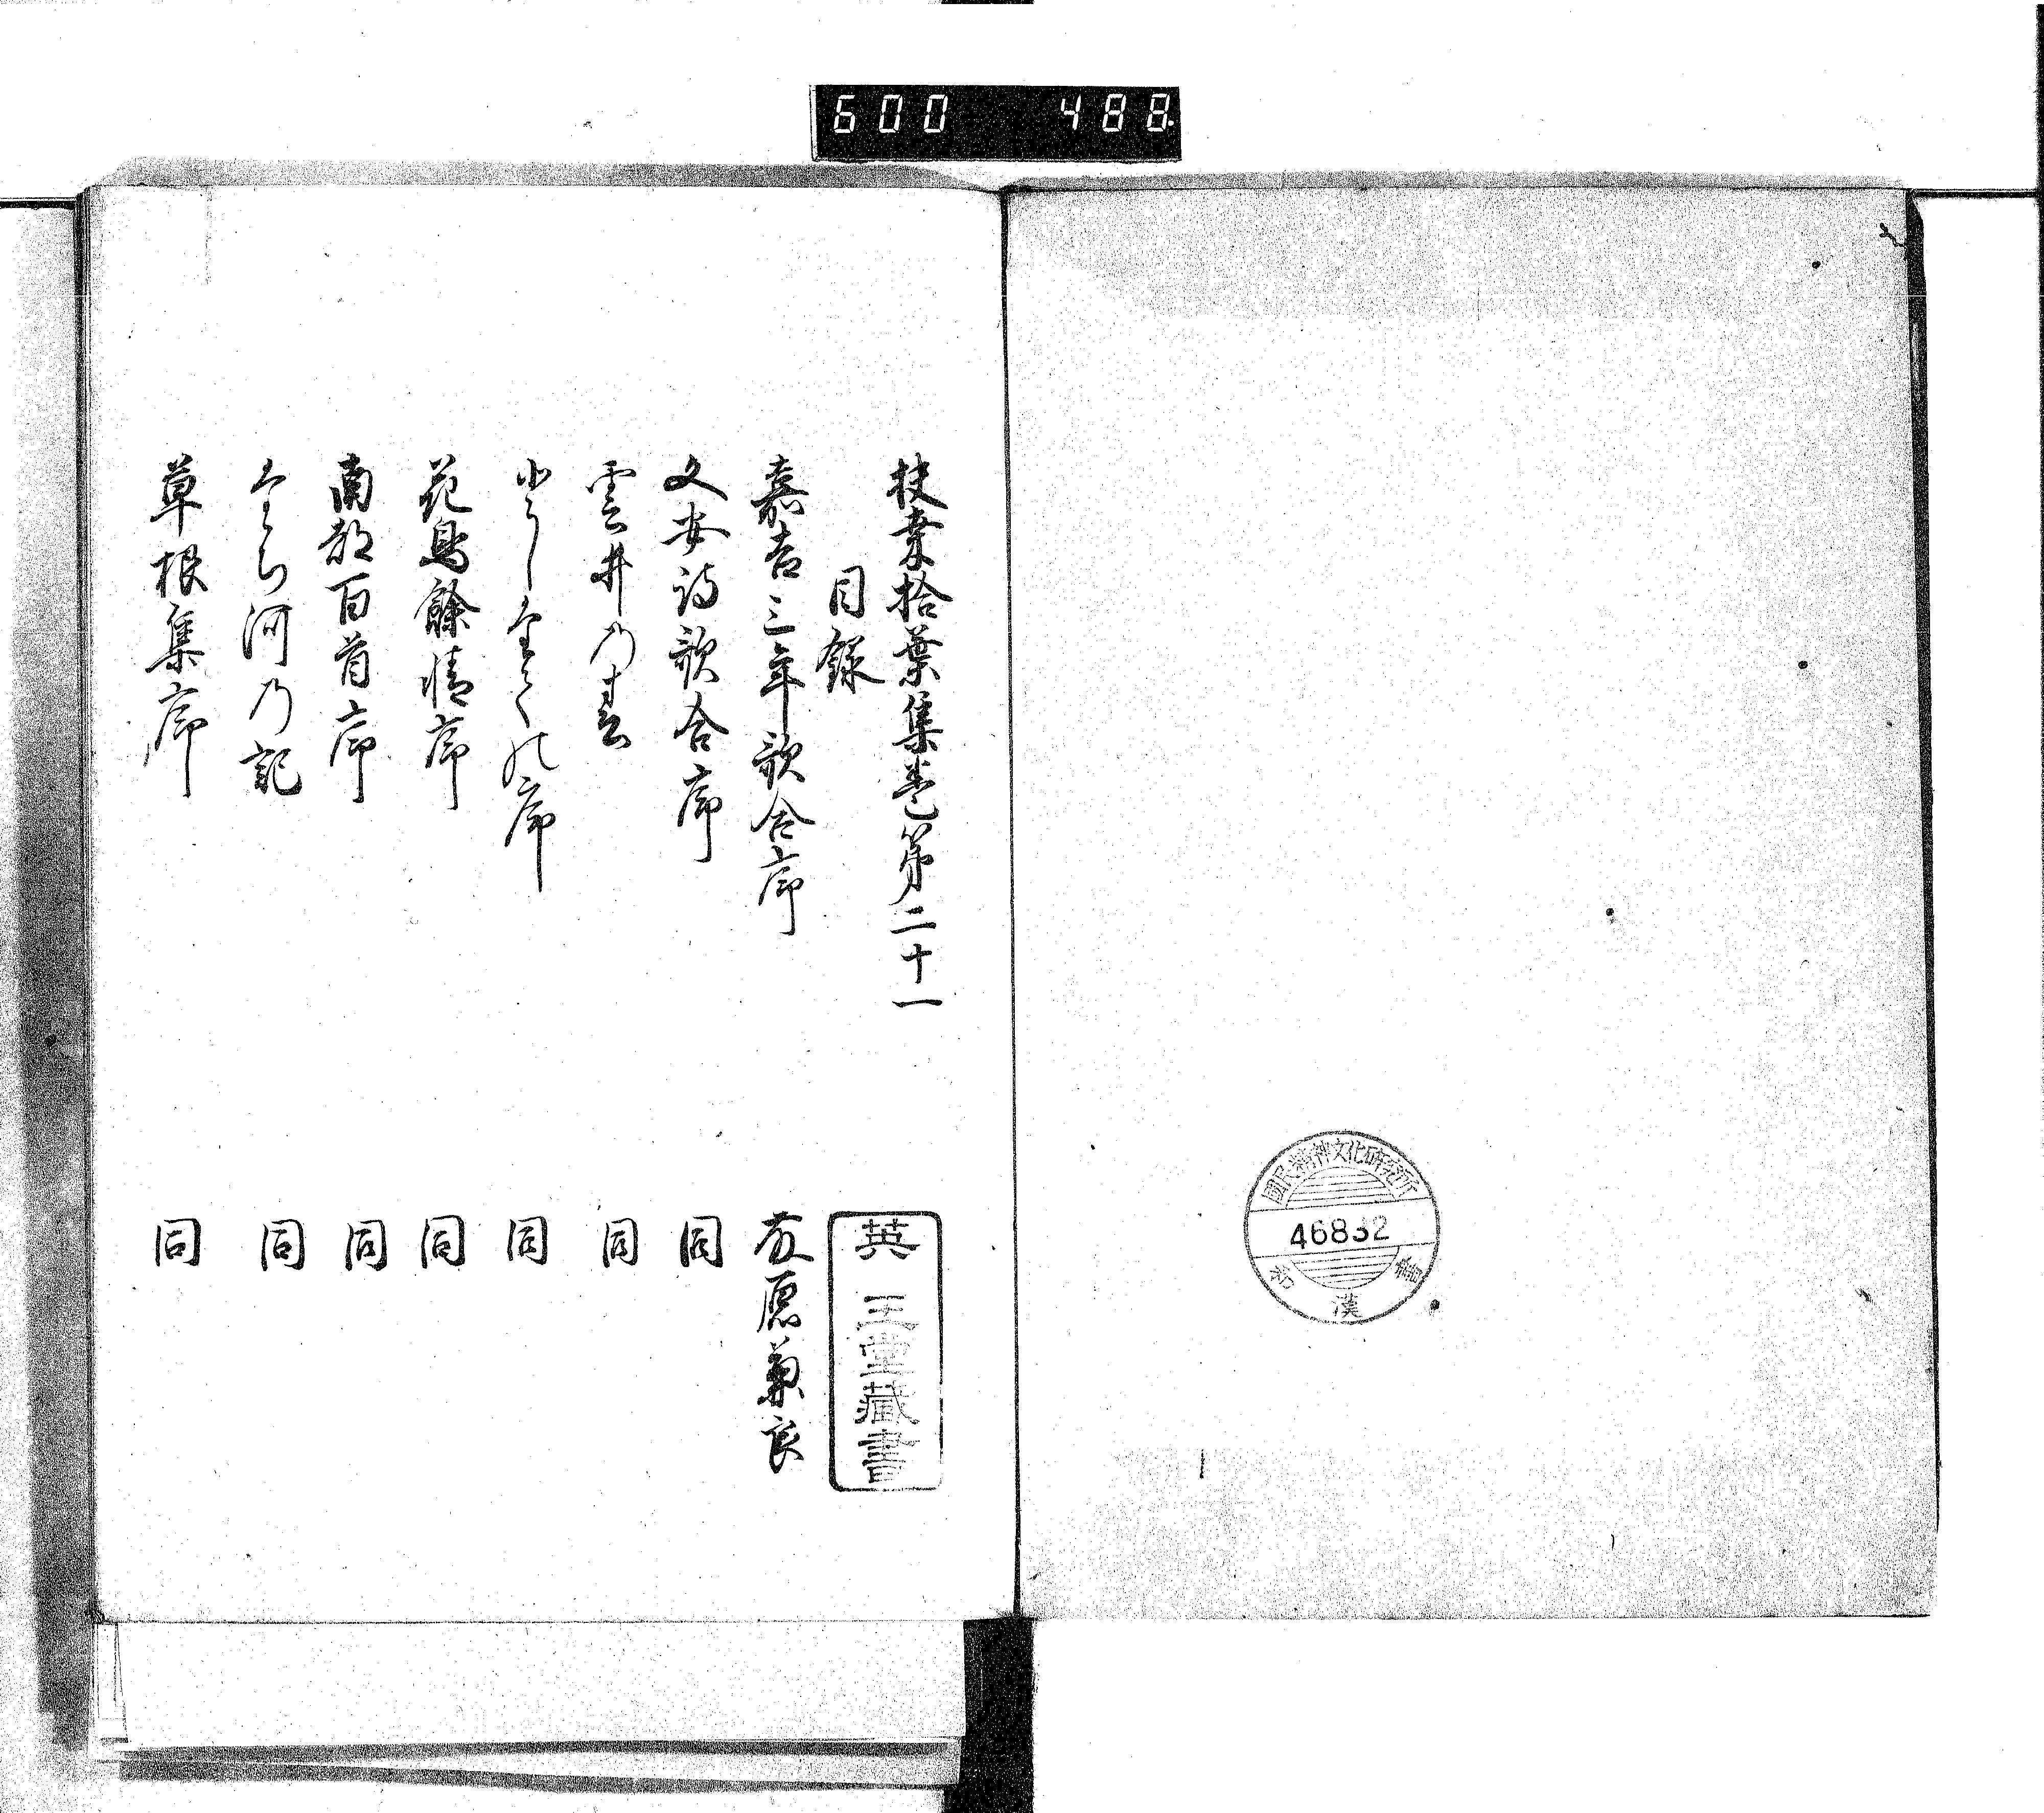 600 488
國民精神文化研究所
46832
和漢書
扶桒拾葉集卷第二十一
目録
嘉吉三年歌合序
藤原兼良
文安詩歌合序
同
雲井乃春
同
同
花鳥餘情序
同
南都百首序
同
ふち河乃記
同
草根集序
同
英 王堂藏書